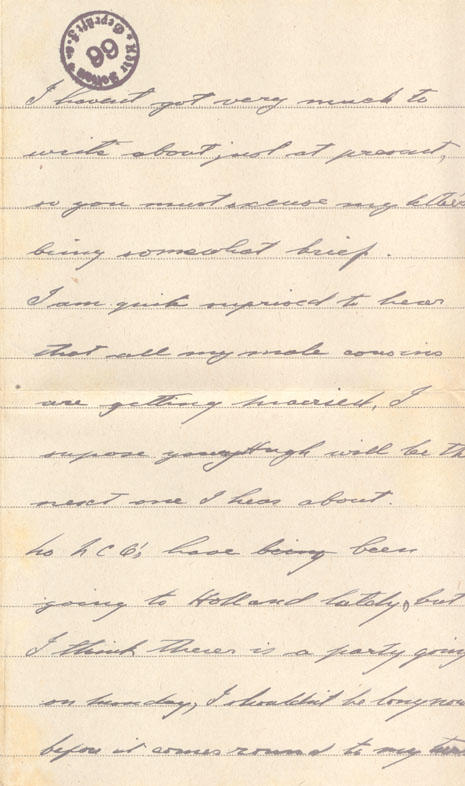 Geprüft F.a.
66
I havent got very much to
write about just at present,
so you must excuse my letters
being somewhat brief.
I am quite suprised to hear
that all my male cousins
are getting married, I
supose young Hugh will be the
next one I hear about.
No N C O's have being been
going to Holland lately, but
I think theres is a party going
on monday, I shouldn't be long now
before it comes round to my turn